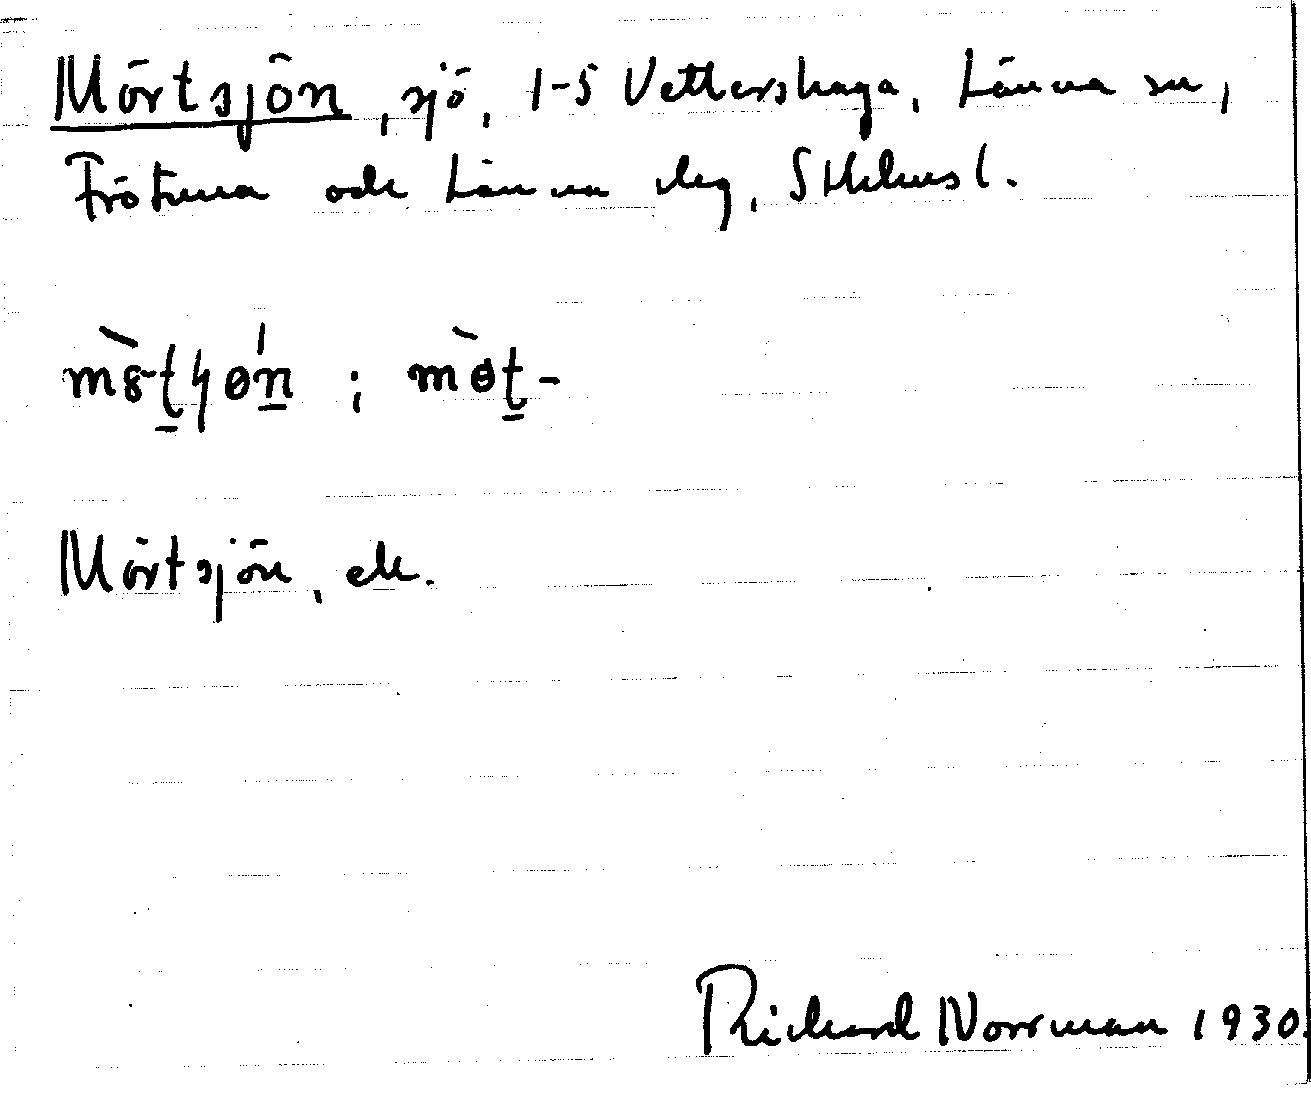 Mörtsjön, sjö, 1-5 Vettershaga, Länna sn,
Frötuna och Länna skg, Sthlms l.
Mörtsjön, ek.
Richard Norrman 1930.